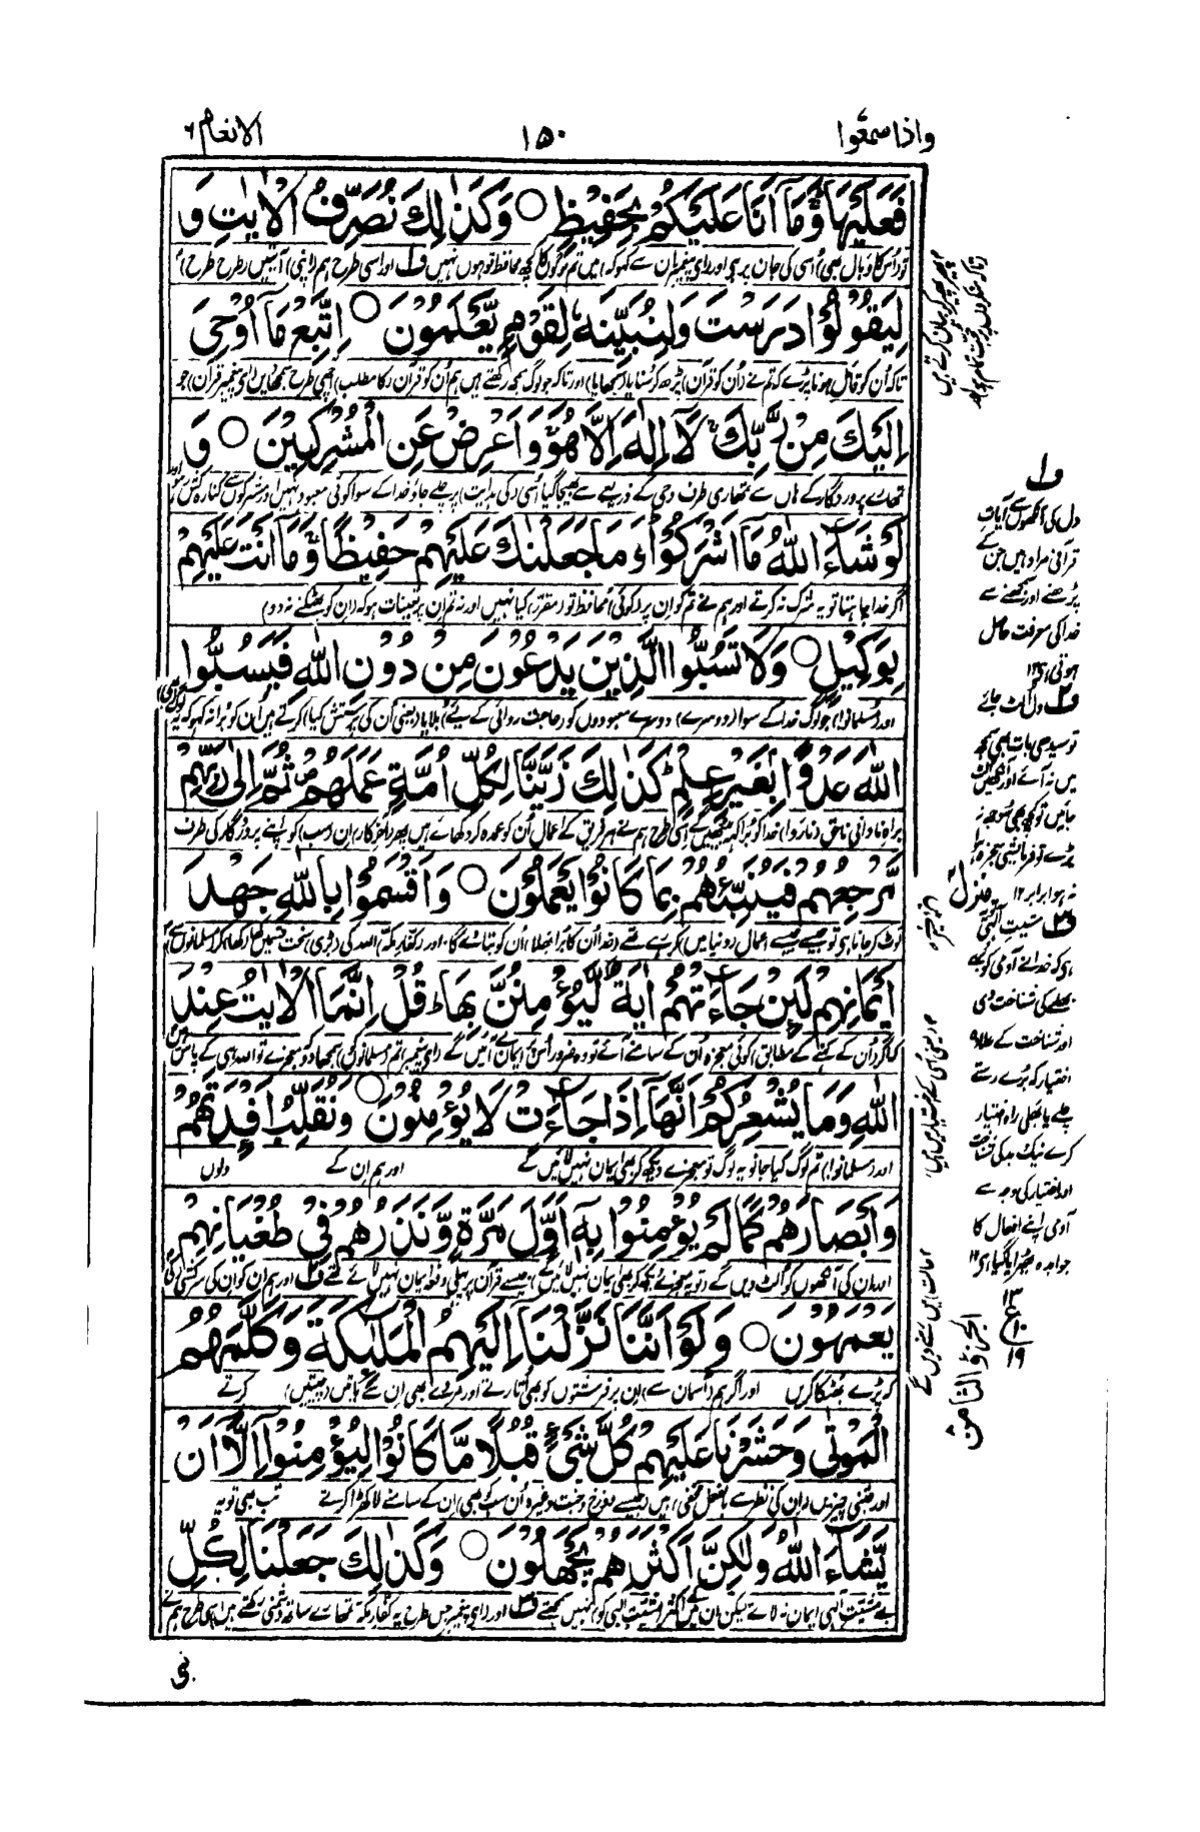 واذا سمعوا
۱۵۰
الانعام ۶
فَعَلَيْهَا ؕ وَمَآ اَنَا عَلَيْكُمْ بِحَفِيْظٍ ○ وَكَذٰلِكَ نُصَرِّفُ الْاٰيٰتِ وَ
تو (اس کا وبال بھی) اسی کی جان پر ہے اور (اے پیغمبر ان سے کہو کہ) میں تم لوگوں کا کچھ محافظ تو ہوں نہیں ف۱ اور اسی طرح ہم (اپنی) آیتیں (طرح طرح)
لِيَقُوْلُوْا دَرَسْتَ وَلِنُبَيِّنَهٗ لِقَوْمٍ يَّعْلَمُوْنَ ○ اِتَّبِعْ مَآ اُوْحِىَ
تاکہ اُن کو قائل ہونا پڑے کہ تم نے (اُن کو قرآن) پڑھ کر سُنایا (سمجھایا) اور تاکہ جو لوگ سمجھ رکھتے ہیں ہم اُن کو قرآن (کا مطلب) اچھی طرح سمجھا دیں (اے پیغمبر قرآن) جو
اِلَيْكَ مِنْ رَّبِّكَ ۚ لَآ اِلٰهَ اِلَّا هُوَ ۚ وَاَعْرِضْ عَنِ الْمُشْرِكِيْنَ ○ وَ
تمھارے پروردگار کے ہاں سے تمھاری طرف وحی کے ذریعے سے بھیجا گیا اُسی (کی ہدایت) پر چلے جاؤ خدا کے سوا کوئی معبود نہیں اور مشرکوں سے کنارہ کش رہو اور
لَوْ شَآءَ اللّٰهُ مَآ اَشْرَكُوْا ؕ وَمَا جَعَلْنٰكَ عَلَيْهِمْ حَفِيْظًا ۚ وَمَآ اَنْتَ عَلَيْهِمْ
اگر خدا چاہتا تو یہ شرک نہ کرتے اور ہم نے تم کو اِن پر (کوئی) محافظ تو (مقرر) کیا نہیں اور نہ تم اِن پر تعینات ہو کہ (ان کو بھٹکنے نہ دو)
بِوَكِيْلٍ ○ وَلَا تَسُبُّوا الَّذِيْنَ يَدْعُوْنَ مِنْ دُوْنِ اللّٰهِ فَيَسُبُّوا
اور (مسلمانو!) جو لوگ خدا کے سوا (دوسرے) دوسرے معبودوں کو (حاجت روائی کے لیے) بلایا (یعنی اُن کی پرستش کیا) کرتے ہیں اُن کو بُرا نہ کہو کہ یہ
اللّٰهَ عَدْوًۢا بِغَيْرِ عِلْمٍ ؕ كَذٰلِكَ زَيَّنَّا لِكُلِّ اُمَّةٍ عَمَلَهُمْ ۪ ثُمَّ اِلٰى رَبِّهِمْ
براہِ نادانی ناحق (ناروا) خدا کو بُرا کہہ بیٹھیں گے اسی طرح ہم نے ہر فریق کے اعمال اُن کو عمدہ کر دکھائے ہیں پھر (آخر کار) اِن (سب) کو اپنے پروردگار کی طرف
مَّرْجِعُهُمْ فَيُنَبِّئُهُمْ بِمَا كَانُوْا يَعْمَلُوْنَ ○ وَاَقْسَمُوْا بِاللّٰهِ جَهْدَ
لوٹ کر جانا ہے تو جیسے جیسے اعمال (دنیا میں) کر رہے تھے (خدا اُن کا بُرا بھلا) اُن کو بتائے گا۔ اور (کفارِ مکہ) اللہ کی (بڑی) سخت قسمیں کھا کھا کر (مسلمانوں سے)
اَيْمَانِهِمْ لَئِنْ جَآءَتْهُمْ اٰيَةٌ لَّيُؤْمِنُنَّ بِهَا ؕ قُلْ اِنَّمَا الْاٰيٰتُ عِنْدَ
کہ اگر (اُن کے کہنے کے مطابق) کوئی معجزہ اُن کے سامنے آئے تو وہ ضرور اُس پر ایمان لے آئیں گے (اے پیغمبر) تم (مسلمانوں کو) سمجھا دو کہ معجزے تو اللہ ہی کے پاس ہیں
اللّٰهِ وَمَا يُشْعِرُكُمْ ۙ اَنَّهَآ اِذَا جَآءَتْ لَا يُؤْمِنُوْنَ ○ وَنُقَلِّبُ اَفْـِٕدَتَهُمْ
اور (مسلمانو!) تم لوگ کیا جانو یہ لوگ تو معجزے دیکھ کر بھی ایمان نہیں لائیں گے اور ہم ان کے دلوں
وَاَبْصَارَهُمْ كَمَا لَمْ يُؤْمِنُوْا بِهٖٓ اَوَّلَ مَرَّةٍ وَّنَذَرُهُمْ فِىْ طُغْيَانِهِمْ
اور ان کی آنکھوں کو اُلٹ دیں گے (تو یہ معجزے دیکھ کر بھی ایمان نہیں لائیں گے) جیسے قرآن پر پہلی دفعہ ایمان نہیں لائے تھے ف۲ اور ہم ان کو ان کی سرکشی
يَعْمَهُوْنَ ○ وَلَوْ اَنَّنَا نَزَّلْنَآ اِلَيْهِمُ الْمَلٰٓئِكَةَ وَكَلَّمَهُمُ
کہ پڑے بھٹکا کریں اور اگر ہم (آسمان سے) ان پر فرشتوں کو بھی اُتارتے اور مُردے بھی ان سے باتیں (چیتیں) کرتے
الْمَوْتٰى وَحَشَرْنَا عَلَيْهِمْ كُلَّ شَىْءٍ قُبُلًا مَّا كَانُوْا لِيُؤْمِنُوْٓا اِلَّآ اَنْ
اور جتنی چیزیں (ان کی نظر سے بالفعل مخفی) ہیں (جیسے دوزخ و جنت وغیرہ) اُن سب کو بھی ان کے سامنے لا کھڑا کرتے تب بھی تو یہ
يَّشَآءَ اللّٰهُ وَلٰكِنَّ اَكْثَرَهُمْ يَجْهَلُوْنَ ○ وَكَذٰلِكَ جَعَلْنَا لِكُلِّ
بے مشیّت الٰہی ایمان نہ لاتے لیکن ان میں اکثر (مشیّت الٰہی کو) نہیں سمجھتے ف۳ اور (اے پیغمبر جس طرح یہ کفارِ مکہ تمھارے ساتھ دشمنی رکھتے ہیں) اسی طرح ہم نے
ف۱
دل کی آنکھوں سے آیاتِ
قرآنی مراد ہیں جن کے
پڑھنے اور سمجھنے سے
خدا کی معرفت حاصل
ہوتی ہے ۱۲
ف۲ دل اُلٹ جائے
تو سیدھی بات بھی سمجھ
میں نہ آئے اور آنکھیں الٹ
جائیں تو کچھ بھی سُوجھ نہ
پڑے تو فرمائشی معجزہ ہوا
نہ ہوا برابر ۱۲
منزل ۲
ف۳ مشیّتِ الٰہی
ہے کہ خدا نے آدمی کو بُرے
بھلے کی شناخت دی
اور شناخت کے علاوہ
اختیار کہ بُرے رستے
چلے یا بھلی راہ اختیار
کرے نیک و بد کی شناخت
اور اختیار کی وجہ سے
آدمی اپنے افعال کا
جوابدہ ٹھہرایا گیا ہے ۱۲
۱۳
ع
۱۹
الجزؤ الثامن
نبی